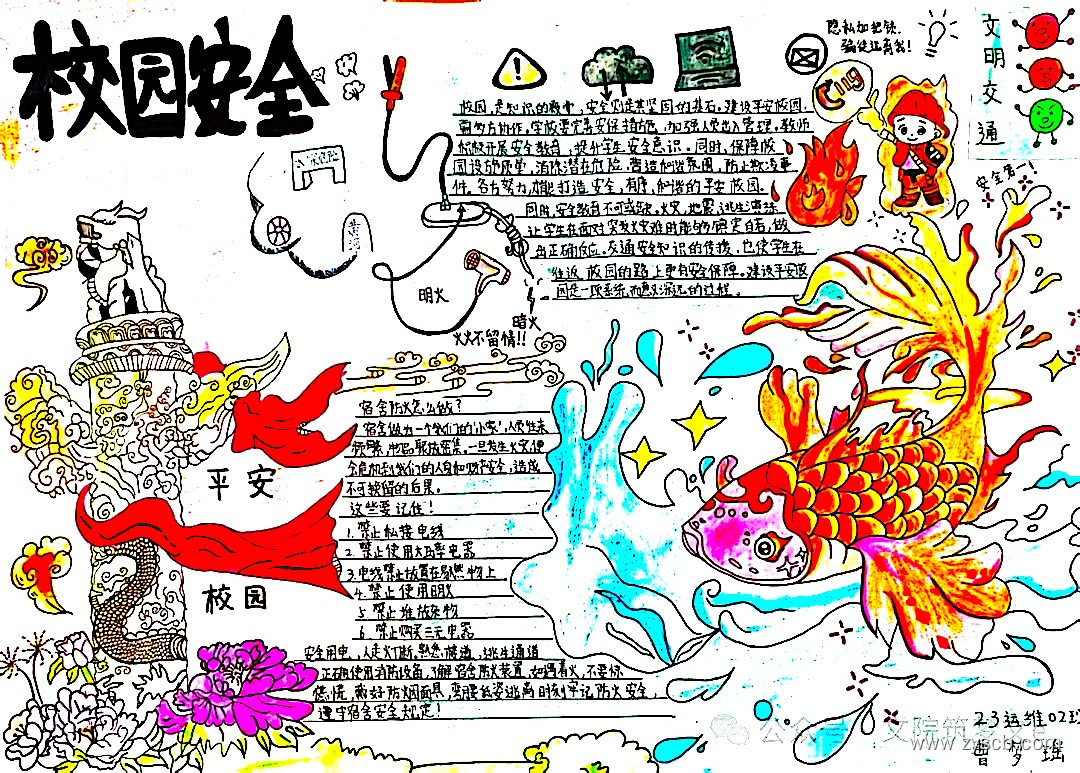 校园安全
隐私加把锁,
骗徒远离我!
文明交通
119
安全第一!
校园,是知识的殿堂,安全则是其坚固的基石。建设平安校园,
需多方协作。学校要完善安保措施,加强人员出入管理。教师
积极开展安全教育,提升学生安全意识。同时,保障校
园设施质量,消除潜在危险,营造和谐氛围,防止欺凌事
件。各方努力,才能打造安全,有序,和谐的平安校园。
同时,安全教育不可或缺。火灾,地震,逃生演练
让学生在面对突发灾难时能够镇定自若,做
出正确反应。交通安全知识的传授,也使学生在
往返校园的路上更有安全保障。建设平安校
园是一项系统而意义深远的过程。
明火
暗火
火火不留情!!
宿舍防火怎么做?
宿舍做为一个我们的'小家',人员往来
频繁,物品聚放密集,一旦发生火灾便
会危机到我们的人身和财产安全,造成
不可挽留的后果。
这些要记住!
1. 禁止私接电线
2. 禁止使用大功率电器
3. 电线禁止放置在易燃物上
4. 禁止使用明火
5. 禁止堆放杂物
6. 禁止购买三无电器
安全用电,人走灯断,熟悉楼道,逃生通道
正确使用消防设备,了解宿舍防火装置,如遇着火,不要惊
慌,戴好防烟面具,弯腰低姿逃离。时刻牢记防火安全,
遵守宿舍安全规定!
平安
校园
23运维02班
曹梦瑶
公众号
www.zyscb.com